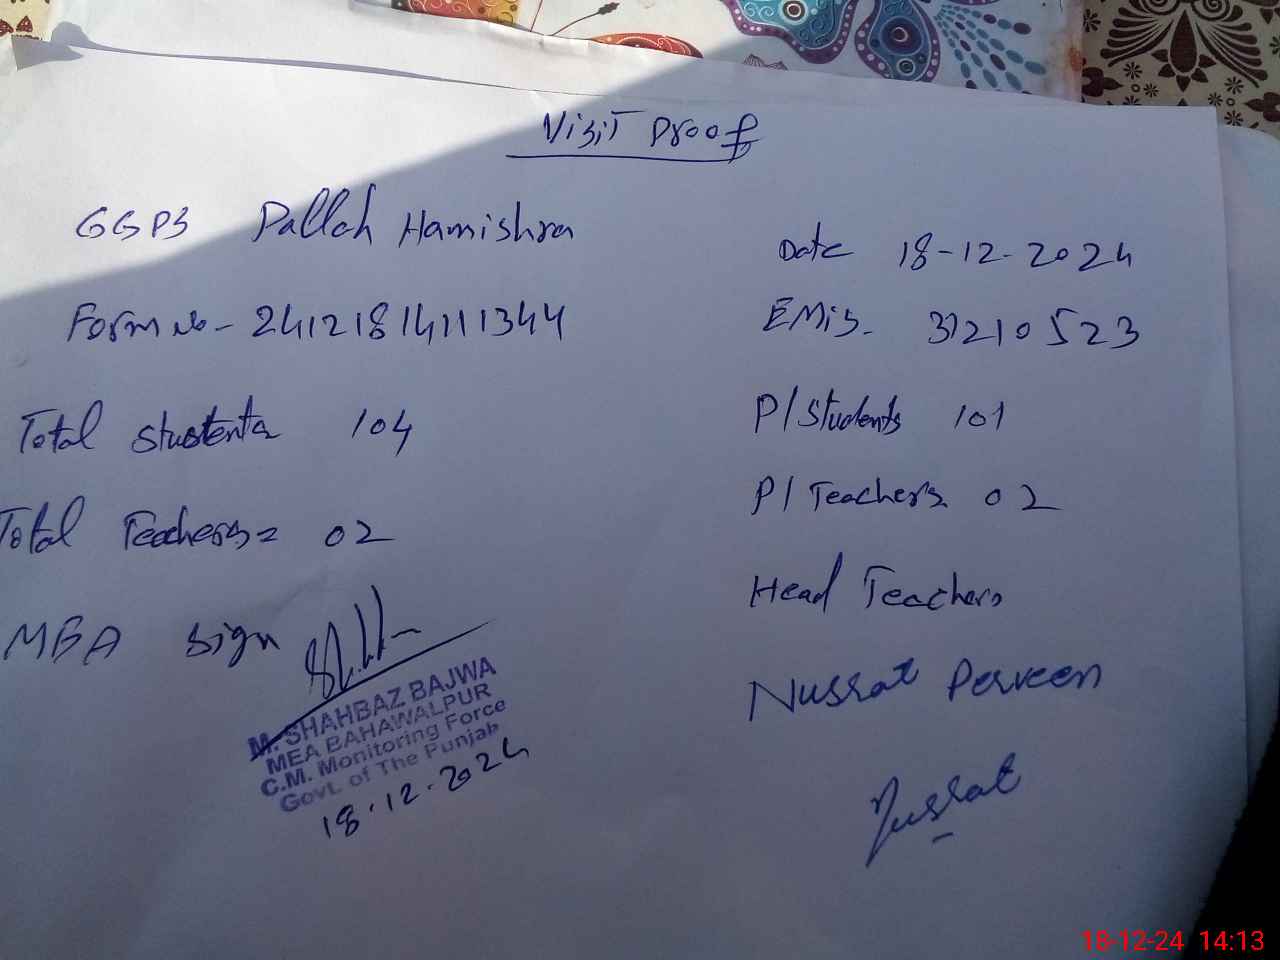 Visit Proof
GGPS Pallah Hamishra
Date 18-12-2024
Form No- 24121814111344
EMis. 31210523
Total students 104
P/Students 101
Total Teachers= 02
P/Teachers 02
MEA Sign
Head Teachers
M. SHAHBAZ BAJWA
MEA BAHAWALPUR
C.M. Monitoring Force
Govt. of The Punjab
18.12.2024
Nussrat Perveen
Nussrat
18-12-24 14:13